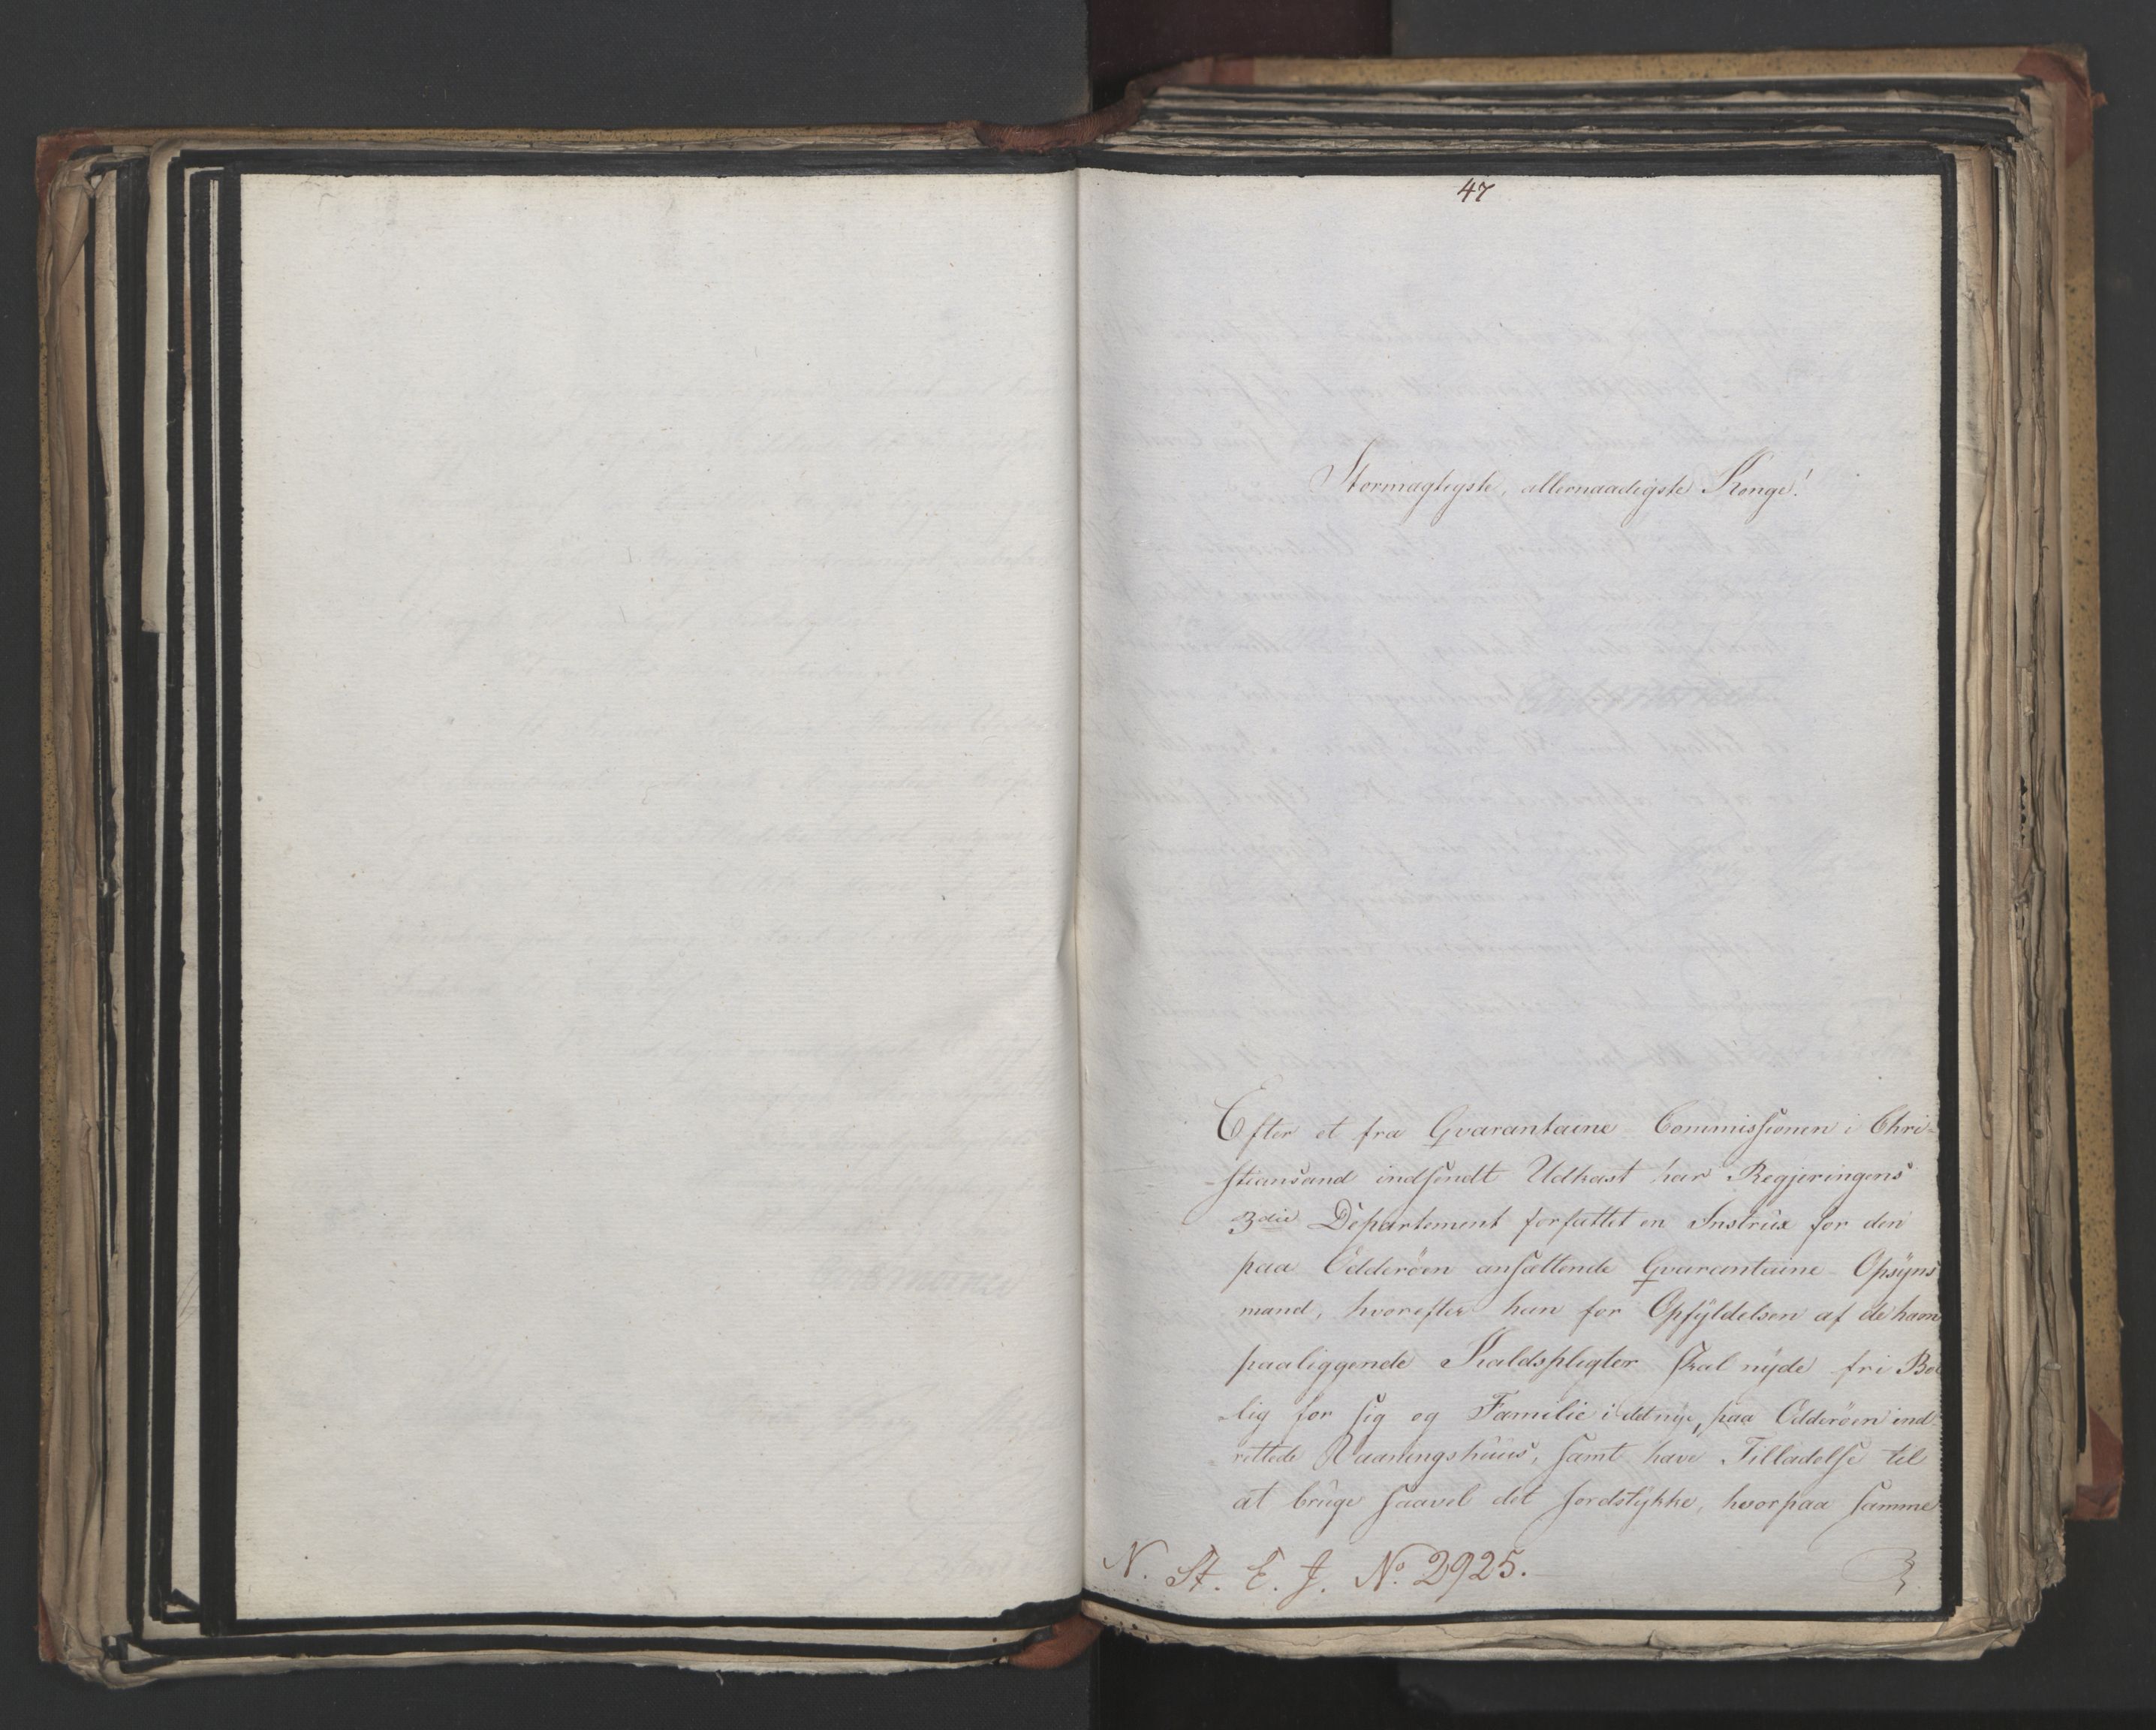 47
Stormægtigste, allernaadigste Konge!
Efter et fra Qvarantaine Commissionen i Chri-
-stiansand indsendt Udkast har Regjeringens
3die Departement forfattet en Instrux for den
paa Odderöen ansættende Qvarantaine Opsÿns
mand, hvorefter han for Opfÿldelsen af de ham
paaliggende Kaldspligter skal nÿde fri Bo
-lig for sig og Familie i det nÿe, paa Odderöen ind-
-rettede Vaaningshuus, samt have Tilladelse til
at bruge saavel det Jordstÿkke, hvorpaa samme
N. St. E. J. No. 2925.